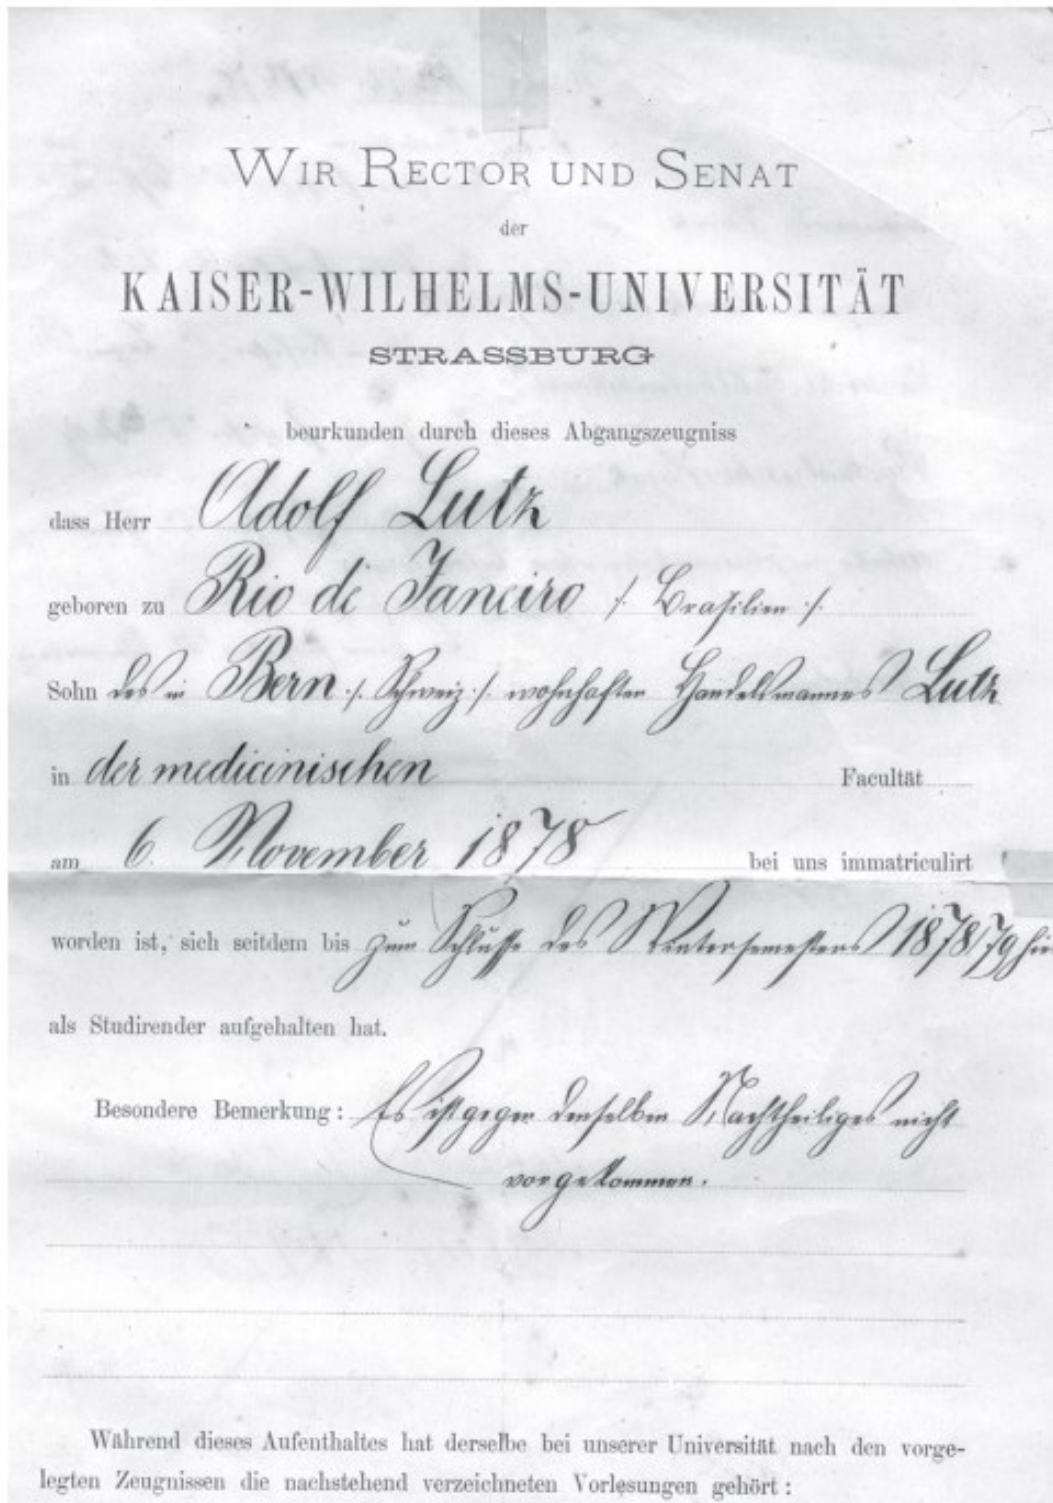 WIR RECTOR UND SENAT
der
KAISER-WILHELMS-UNIVERSITÄT
STRASSBURG
beurkunden durch dieses Abgangszeugniss
dass Herr Adolf Lutz
geboren zu Rio de Janeiro /. Brasilien ./.
Sohn des in Bern ./. Schweiz ./. wohnhaften Handelsmannes Lutz
in der medicinischen Facultät
am 6. November 1878 bei uns immatriculirt
worden ist, sich seitdem bis zum Schlusse des Wintersemesters 1878/79 hier
als Studirender aufgehalten hat.
Besondere Bemerkung: Es ist gegen denselben Nachtheiliges nicht
vorgekommen.
Während dieses Aufenthaltes hat derselbe bei unserer Universität nach den vorge-
legten Zeugnissen die nachstehend verzeichneten Vorlesungen gehört: